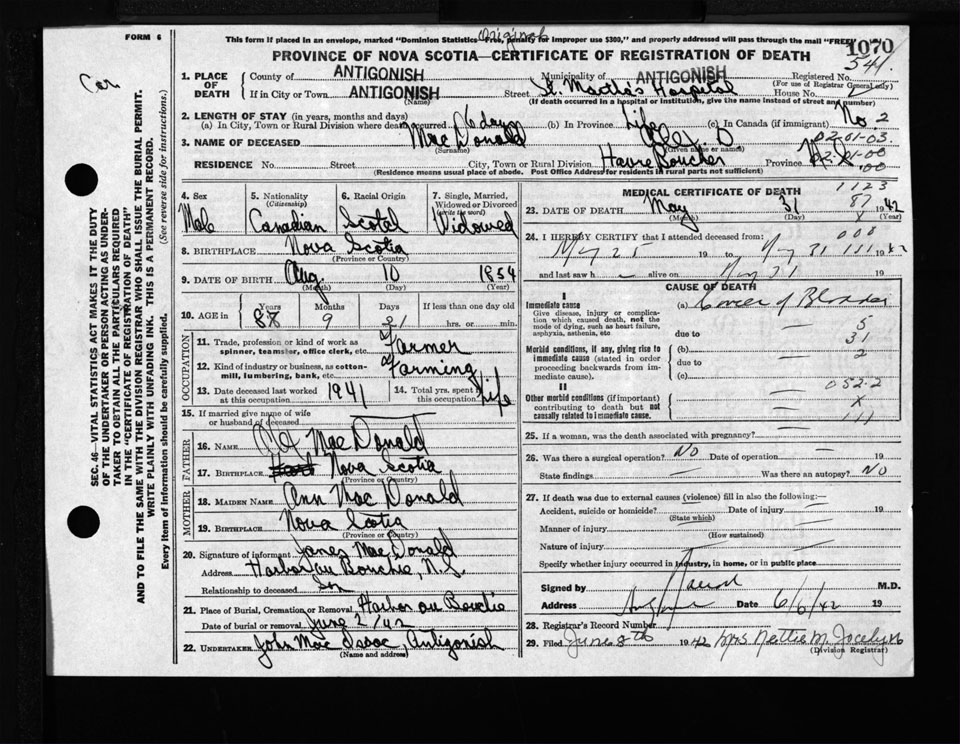 FORM 6
This form if placed in an envelope, marked "Dominion Statistics—Free, penalty for improper use $300," and properly addressed will pass through the mail "FREE"
Original
PROVINCE OF NOVA SCOTIA—CERTIFICATE OF REGISTRATION OF DEATH
1070
541
1. PLACE OF DEATH
County of ANTIGONISH Municipality of ANTIGONISH Registered No.
(For use of Registrar General only)
If in City or Town ANTIGONISH Street St. Martha's Hospital House No.
(Name) (If death occurred in a hospital or institution, give the name instead of street and number)
2. LENGTH OF STAY (in years, months and days)
(a) In City, Town or Rural Division where death occurred 6 days (b) In Province Life (c) In Canada (if immigrant) No. 2
3. NAME OF DECEASED MacDonald Alex. D
(Surname) (Given name or names)
02-01-03.
RESIDENCE No. Street City, Town or Rural Division Havre Boucher Province N.S
(Residence means usual place of abode. Post Office Address for residents in rural parts not sufficient)
SEC. 46—VITAL STATISTICS ACT MAKES IT THE DUTY
OF THE UNDERTAKER OR PERSON ACTING AS UNDER-
TAKER TO OBTAIN ALL THE PARTICULARS REQUIRED
IN THE "CERTIFICATE OF REGISTRATION OF DEATH"
AND TO FILE THE SAME WITH THE DIVISION REGISTRAR WHO SHALL ISSUE THE BURIAL PERMIT.
WRITE PLAINLY WITH UNFADING INK. THIS IS A PERMANENT RECORD.
Every item of Information should be carefully supplied. (See reverse side for instructions.)
4. Sex 5. Nationality 6. Racial Origin 7. Single, Married,
(Citizenship) Widowed or Divorced
(write the word)
Male Canadian Scotch Widowed
8. BIRTHPLACE Nova Scotia
(Province or Country)
9. DATE OF BIRTH Aug 10 1854
(Month) (Day) (Year)
10. AGE in Years Months Days If less than one day old
87 9 21 hrs. or min.
OCCUPATION
11. Trade, profession or kind of work as
spinner, teamster, office clerk, etc. Farmer
12. Kind of industry or business, as cotton-
mill, lumbering, bank, etc. Farming
13. Date deceased last worked at this occupation 1941 14. Total yrs. spent in this occupation Life
15. If married give name of wife
or husband of deceased
FATHER
16. NAME MacDonald
17. BIRTHPLACE Nova Scotia
(Province or Country)
MOTHER
18. MAIDEN NAME Ann MacDonald
19. BIRTHPLACE Nova Scotia
(Province or Country)
20. Signature of informant James MacDonald
Address Harbor au Bouchie, N.S.
Relationship to deceased Son
21. Place of Burial, Cremation or Removal Harbor au Bouchie
Date of burial or removal June 2/42
22. UNDERTAKER John Mac Isaac, Antigonish
(Name and address)
MEDICAL CERTIFICATE OF DEATH
1123
87
23. DATE OF DEATH May 31 1942
(Month) (Day) (Year)
24. I HEREBY CERTIFY that I attended deceased from:
May 25 19 to May 31 19 42
and last saw h alive on May 31 19
CAUSE OF DEATH
I
Immediate cause (a) Cancer of Bladder
Give disease, injury or complica-
tion which caused death, not the
mode of dying, such as heart failure,
asphyxia, asthenia, etc
due to
5
31
Morbid conditions, if any, giving rise to
immediate cause (stated in order
proceeding backwards from im-
mediate cause). (b)
due to
2
(c)
052-2
II
Other morbid conditions (if important)
contributing to death but not
causally related to immediate cause.
X
111
25. If a woman, was the death associated with pregnancy?
26. Was there a surgical operation? NO Date of operation 19
State findings Was there an autopsy? NO
27. If death was due to external causes (violence) fill in also the following:—
Accident, suicide or homicide? Date of injury 19
(State which)
Manner of injury
(How sustained)
Nature of injury
Specify whether injury occurred in industry, in home, or in public place
Signed by M.D.
Address Date 6/6/42 19
28. Registrar's Record Number
29. Filed June 8th 1942 Mrs Nettie M. Jocelyn
(Division Registrar)